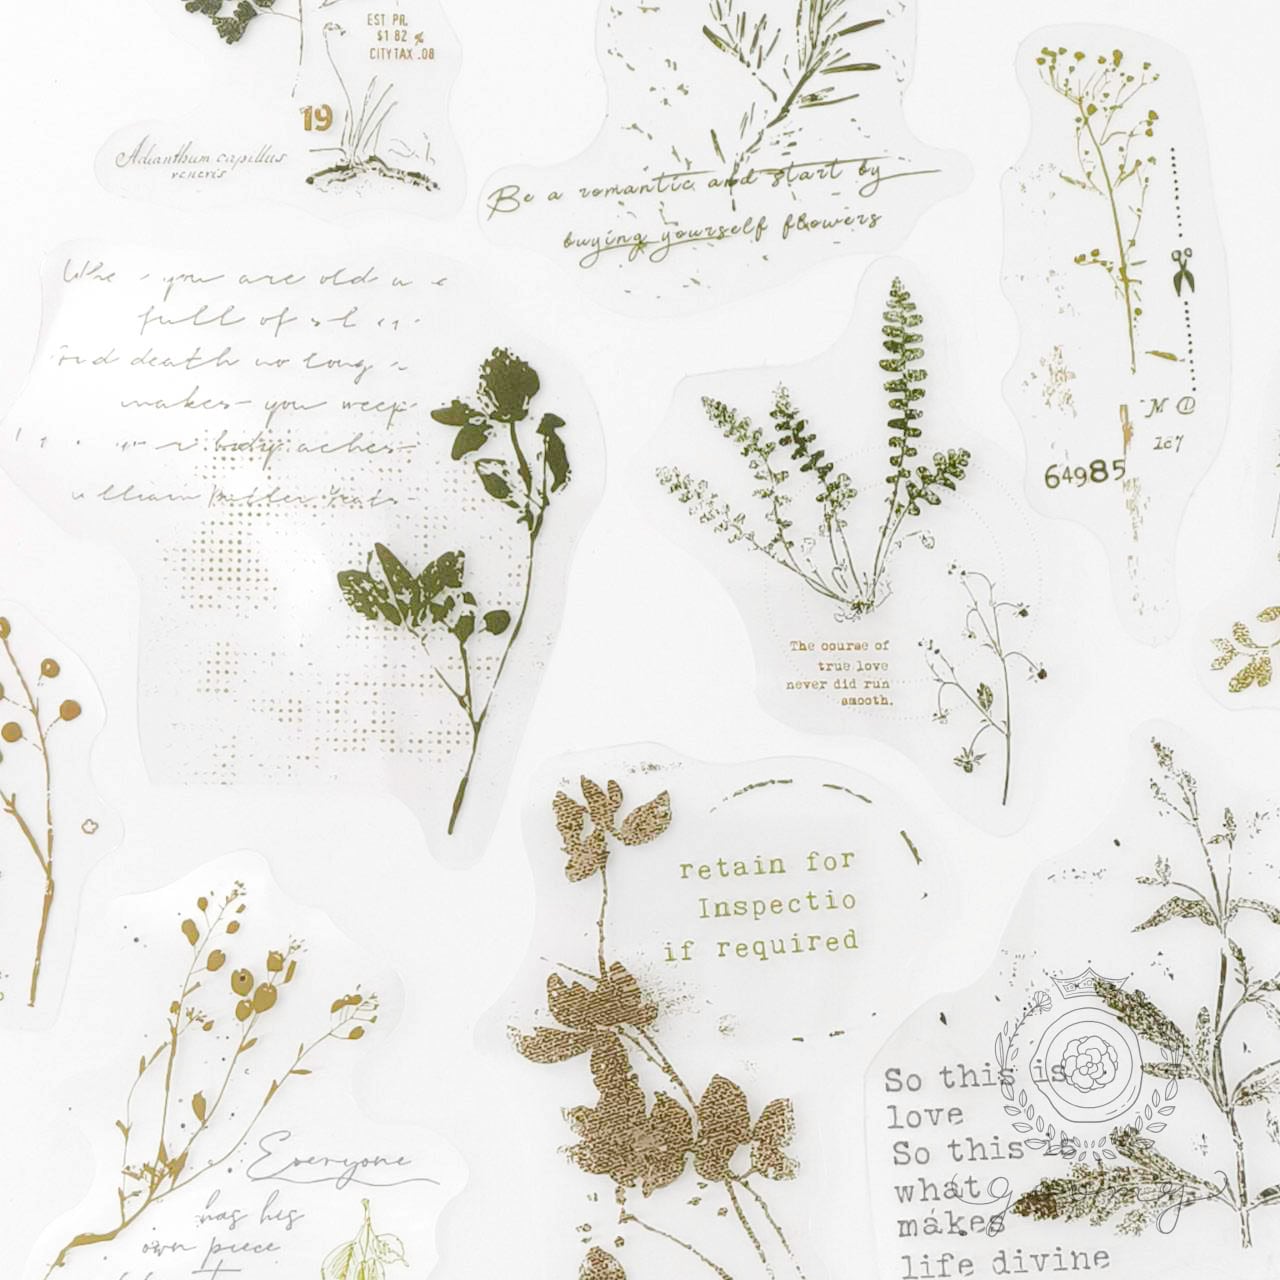 EST PR.
$1 82 ¢
CITY TAX .08
19
Adianthum capillus
veneris
Be a romantic and start by
buying yourself flowers
you are old
full of
death no long
makes you weep
body aches
64985
167
The course of
true love
never did run
smooth.
retain for
Inspectio
if required
So this is
love
So this is
what
makes
life divine
Everyone
has his
own piece